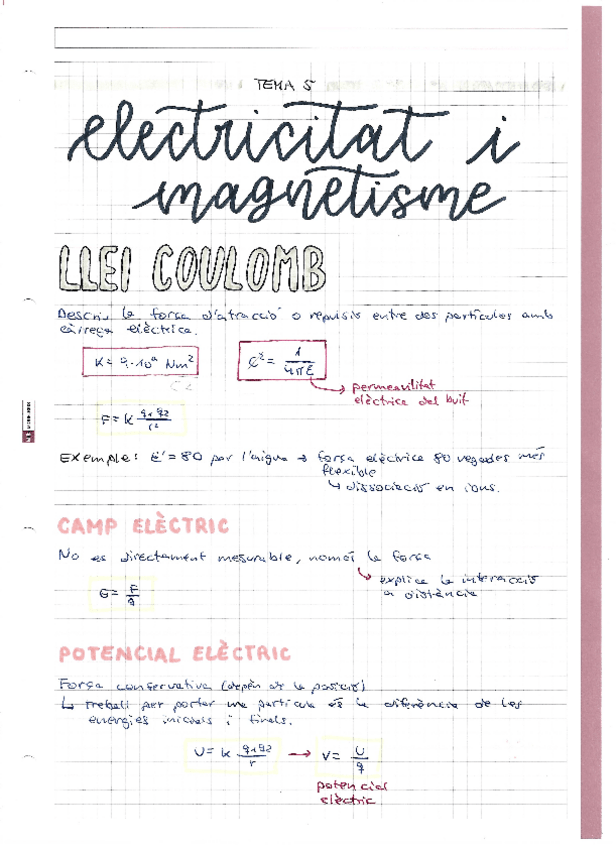 TEMA 5
electricitat i
magnetisme
LLEI COULOMB
Descriu la força d'atracció o repulsió entre dos partícules amb
càrrega elèctrica.
K = 9·10⁹ Nm²
C²
= 1/4πε
permeavilitat
elèctrica del buit
F = K q₁q₂/r²
Exemple: ε' = 80 per l'aigua → força elèctrica 80 vegades més
flexible
↳ dissociació en ions.
CAMP ELÈCTRIC
No es directament mesurable, només la força
↳ explica la interacció
a distància
E = F/q
POTENCIAL ELÈCTRIC
Força conservativa (depèn de la posició)
↳ treball per portar una partícula és la diferència de les
energies inicials i finals.
U = K q₁q₂/r → V = U/q
potencial
elèctric